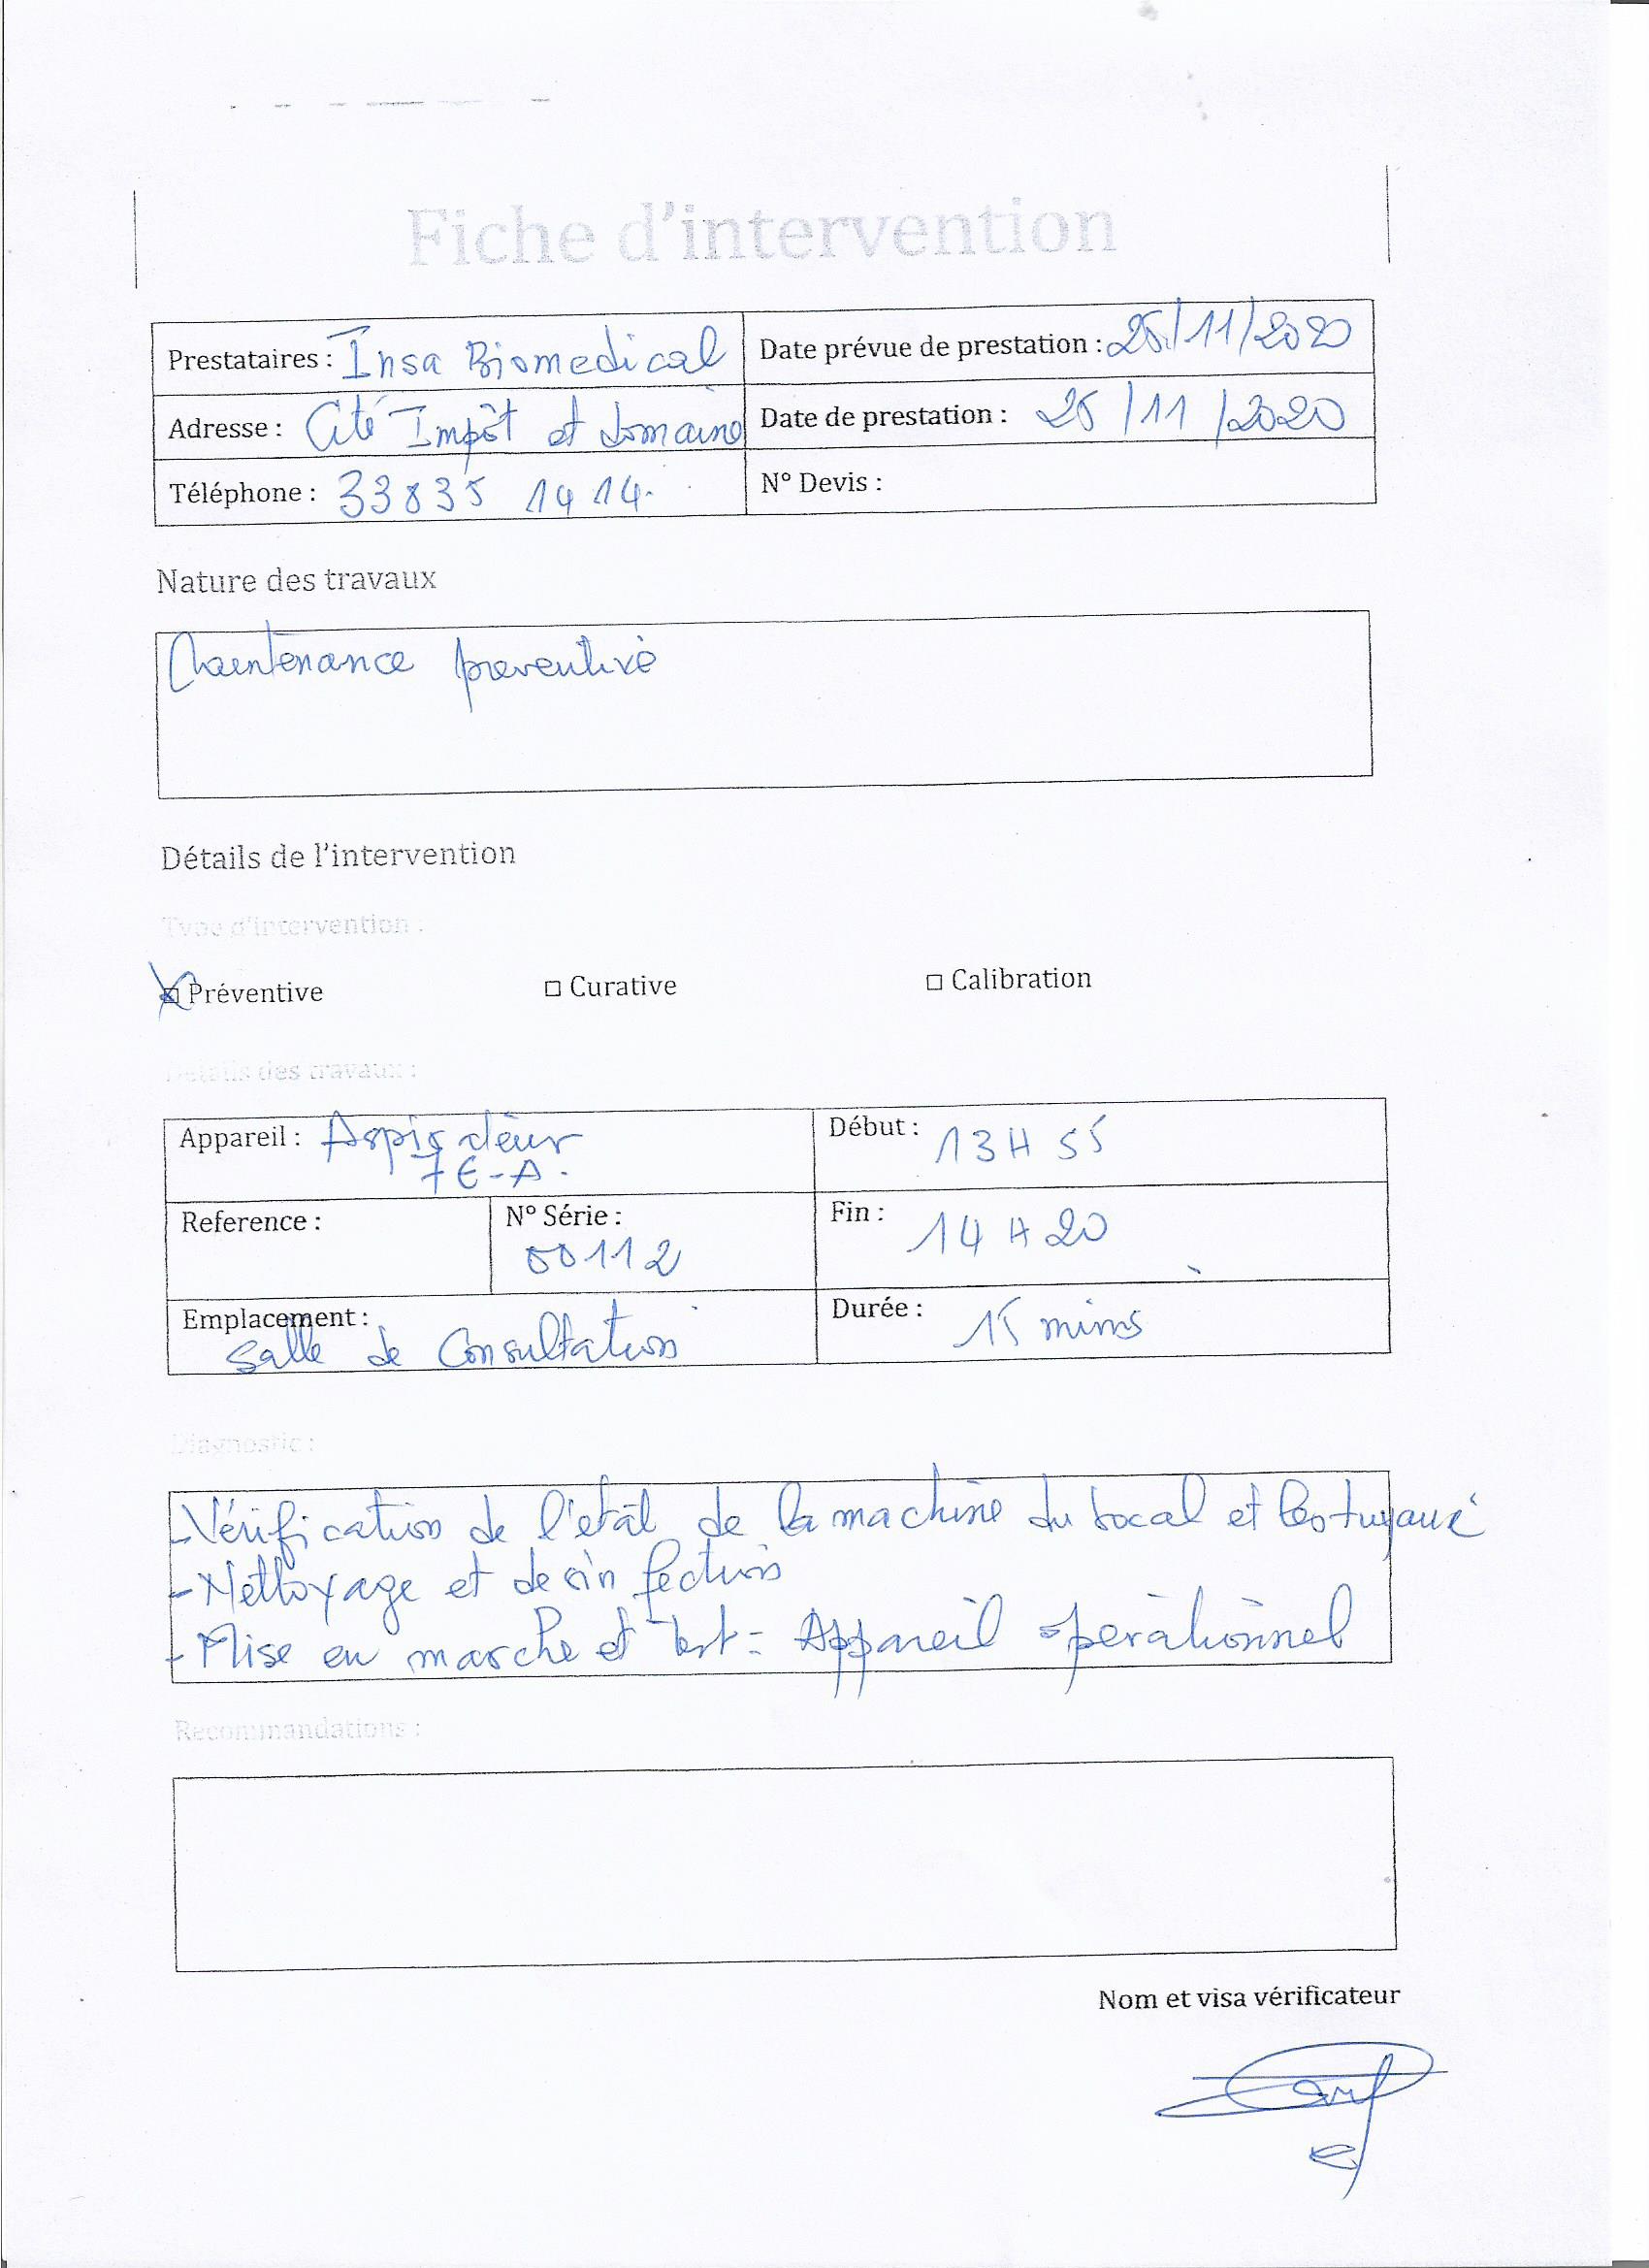 Fiche d'intervention
Prestataires : Insa Biomedical
Date prévue de prestation : 25/11/2020
Adresse : Cité Impôt et domaine
Date de prestation : 25/11/2020
Téléphone : 33835 1414.
N° Devis :
Nature des travaux
Maintenance preventive
Détails de l'intervention
Type d'intervention :
Préventive
Curative
Calibration
Détails des travaux :
Appareil : Aspirateur
7E-A.
Début : 13H55
Reference :
N° Série :
00112
Fin : 14H20
Emplacement :
Salle de Consultation
Durée : 15 mins
Diagnostic :
-Vérification de l'etat de la machine du bocal et les tuyaux
-Nettoyage et desinfection
-Mise en marche et test = Appareil operationnel
Recommandations :
Nom et visa vérificateur